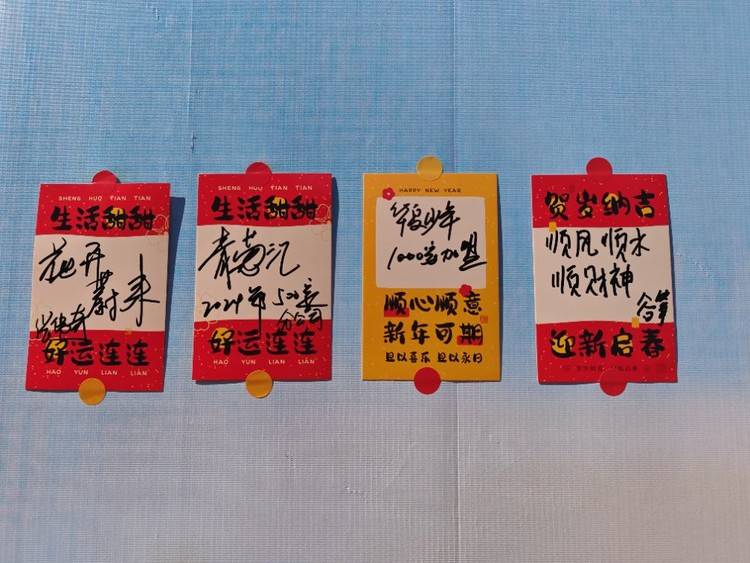 SHENG HUO TIAN TIAN
生活甜甜
花开
蔚来
好运连连
HAO YUN LIAN LIAN
SHENG HUO TIAN TIAN
生活甜甜
2024年 500家
分公司
好运连连
HAO YUN LIAN LIAN
HAPPY NEW YEAR
1000家加盟
顺心顺意
新年可期
且以喜乐 且以永日
贺岁纳吉
顺风顺水
顺财神
迎新启春